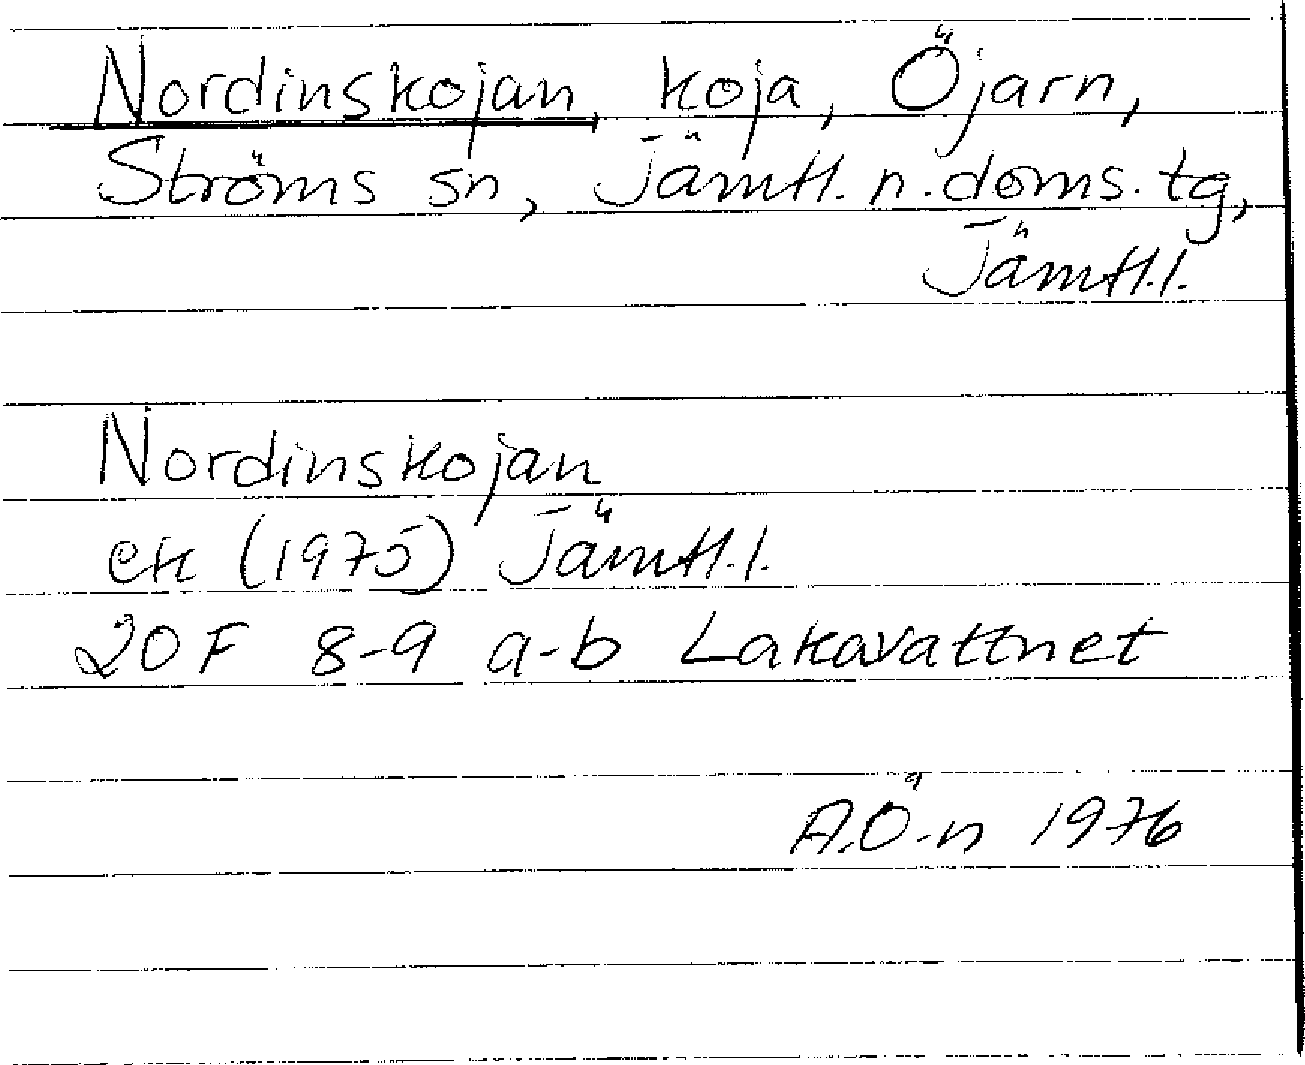 Nordinskojan, koja, Öjarn,
Ströms sn, Jämtl. n. doms. tg,
Jämtl. l.
Nordinskojan
ek (1975) Jämtl. l.
20 F 8-9 a-b Lakavattnet
A.Ö-n 1976